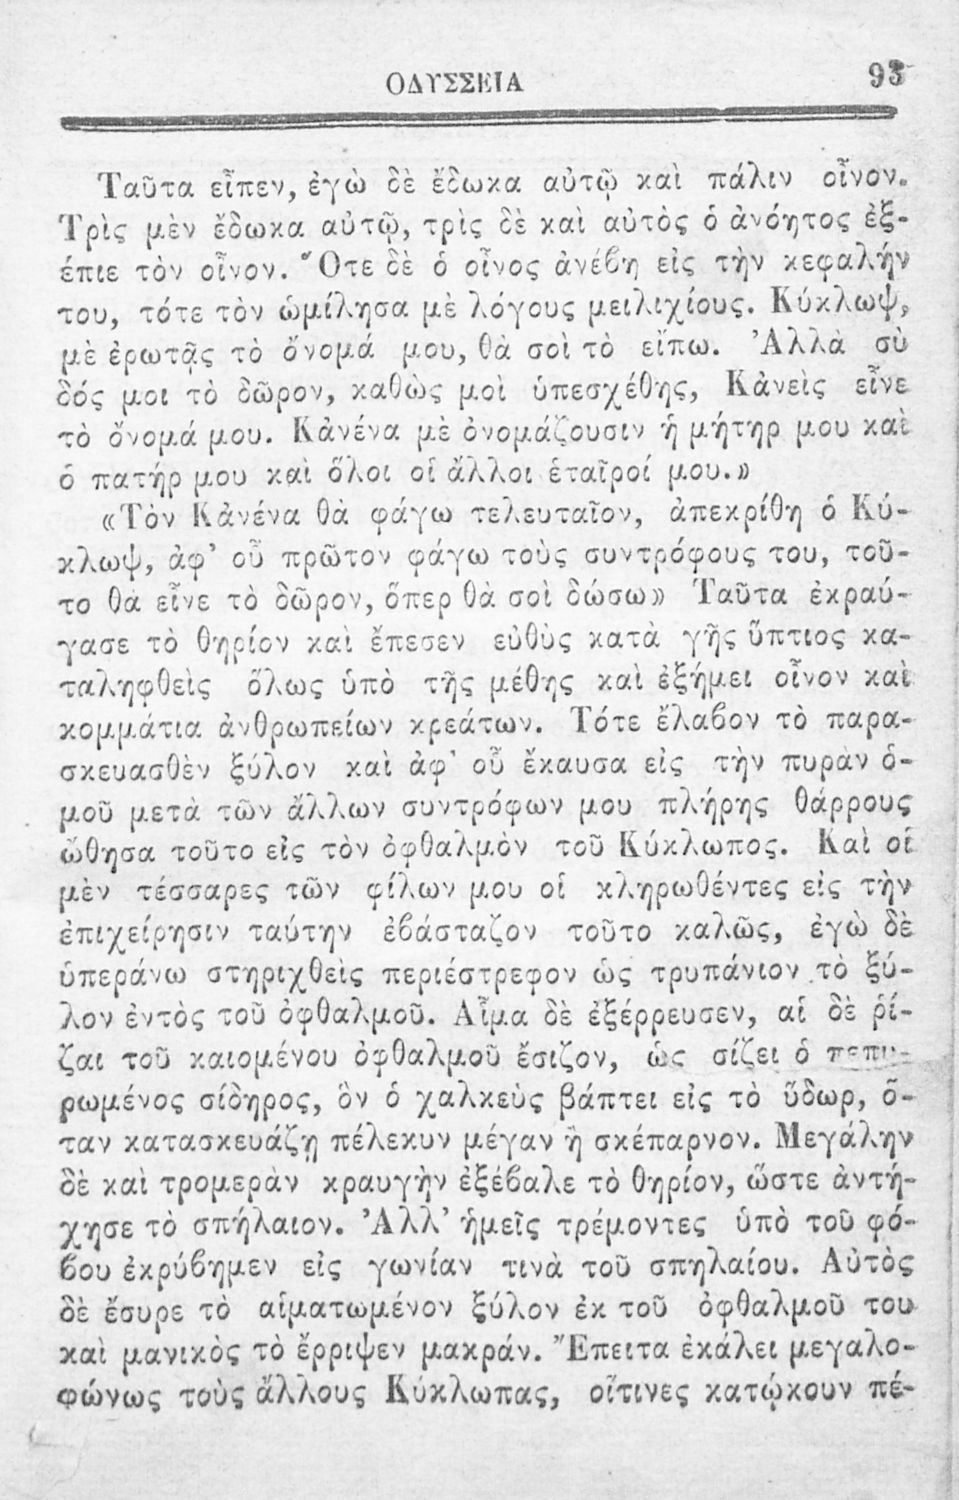 ΟΔΥΣΣΕΙΑ 93
Ταῦτα εἶπεν, ἐγὼ δὲ ἔδωκα αὐτῷ καὶ πάλιν οἶνον.
Τρὶς μὲν ἔδωκα αὐτῷ, τρὶς δὲ καὶ αὐτὸς ὁ ἀνόητος ἐξ-
έπιε τὸν οἶνον. Ὅτε δὲ ὁ οἶνος ἀνέβη εἰς τὴν κεφαλήν
του, τότε τὸν ὡμίλησα μὲ λόγους μειλιχίους. Κύκλωψ,
μὲ ἐρωτᾷς τὸ ὄνομά μου, θὰ σοὶ τὸ εἴπω. Ἀλλὰ σὺ
δός μοι τὸ δῶρον, καθὼς μοὶ ὑπεσχέθης, Κἀνεὶς εἶνε
τὸ ὄνομά μου. Κἀνένα μὲ ὀνομάζουσιν ἡ μήτηρ μου καὶ
ὁ πατήρ μου καὶ ὅλοι οἱ ἄλλοι ἑταῖροί μου.»
«Τὸν Κἀνένα θὰ φάγω τελευταῖον, ἀπεκρίθη ὁ Κύ-
κλωψ, ἀφ’ οὗ πρῶτον φάγω τοὺς συντρόφους του, τοῦ-
το θὰ εἶνε τὸ δῶρον, ὅπερ θὰ σοὶ δώσω» Ταῦτα ἐκραύ-
γασε τὸ θηρίον καὶ ἔπεσεν εὐθὺς κατὰ γῆς ὕπτιος κα-
ταληφθεὶς ὅλως ὑπὸ τῆς μέθης καὶ ἐξήμει οἶνον καὶ
κομμάτια ἀνθρωπείων κρεάτων. Τότε ἔλαβον τὸ παρα-
σκευασθὲν ξύλον καὶ ἀφ’ οὗ ἔκαυσα εἰς τὴν πυρὰν ὁ-
μοῦ μετὰ τῶν ἄλλων συντρόφων μου πλήρης θάρρους
ὤθησα τοῦτο εἰς τὸν ὀφθαλμὸν τοῦ Κύκλωπος. Καὶ οἱ
μὲν τέσσαρες τῶν φίλων μου οἱ κληρωθέντες εἰς τὴν
ἐπιχείρησιν ταύτην ἐβάσταζον τοῦτο καλῶς, ἐγὼ δὲ
ὑπεράνω στηριχθεὶς περιέστρεφον ὡς τρυπάνιον τὸ ξύ-
λον ἐντὸς τοῦ ὀφθαλμοῦ. Αἷμα δὲ ἐξέρρευσεν, αἱ δὲ ῥί-
ζαι τοῦ καιομένου ὀφθαλμοῦ ἔσιζον, ὡς σίζει ὁ πεπυ-
ρωμένος σίδηρος, ὃν ὁ χαλκεὺς βάπτει εἰς τὸ ὕδωρ, ὅ-
ταν κατασκευάζῃ πέλεκυν μέγαν ἢ σκέπαρνον. Μεγάλην
δὲ καὶ τρομερὰν κραυγὴν ἐξέβαλε τὸ θηρίον, ὥστε ἀντή-
χησε τὸ σπήλαιον. Ἀλλ’ ἡμεῖς τρέμοντες ὑπὸ τοῦ φό-
βου ἐκρύβημεν εἰς γωνίαν τινὰ τοῦ σπηλαίου. Αὐτὸς
δὲ ἔσυρε τὸ αἱματωμένον ξύλον ἐκ τοῦ ὀφθαλμοῦ του
καὶ μανικὸς τὸ ἔρριψεν μακράν. Ἔπειτα ἐκάλει μεγαλο-
φώνως τοὺς ἄλλους Κύκλωπας, οἵτινες κατῴκουν πέ-